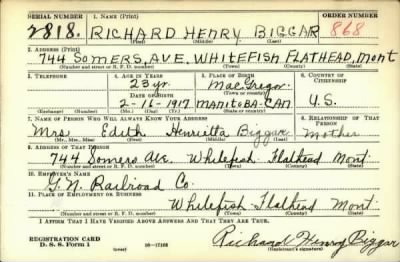 SERIAL NUMBER 1. NAME (Print) ORDER NUMBER
2818. RICHARD HENRY BIGGAR 868
(First) (Middle) (Last)
2. ADDRESS (Print)
744 SOMERS, AVE. WHITEFISH FLATHEAD, Mont
(Number and street or R. F. D. number) (Town) (County) (State)
3. TELEPHONE 4. AGE IN YEARS 5. PLACE OF BIRTH 6. COUNTRY OF CITIZENSHIP
23 yr. MacGregor
DATE OF BIRTH (Town or county)
2-16-1917 MANITOBA-CAN U.S.
(Exchange) (Number) (Mo.) (Day) (Yr.) (State or country)
7. NAME OF PERSON WHO WILL ALWAYS KNOW YOUR ADDRESS 8. RELATIONSHIP OF THAT PERSON
Mrs Edith Henrietta Biggar Mother
(Mr., Mrs., Miss) (First) (Middle) (Last)
9. ADDRESS OF THAT PERSON
744 Somers Ave. Whitefish Flathead Mont.
(Number and street or R. F. D. number) (Town) (County) (State)
10. EMPLOYER'S NAME
G. N. Railroad Co.
11. PLACE OF EMPLOYMENT OR BUSINESS
Whitefish Flathead Mont.
(Number and street or R. F. D. number) (Town) (County) (State)
I AFFIRM THAT I HAVE VERIFIED ABOVE ANSWERS AND THAT THEY ARE TRUE.
REGISTRATION CARD
D. S. S. Form 1 (over) 16-17105 Richard Henry Biggar
(Registrant's signature)